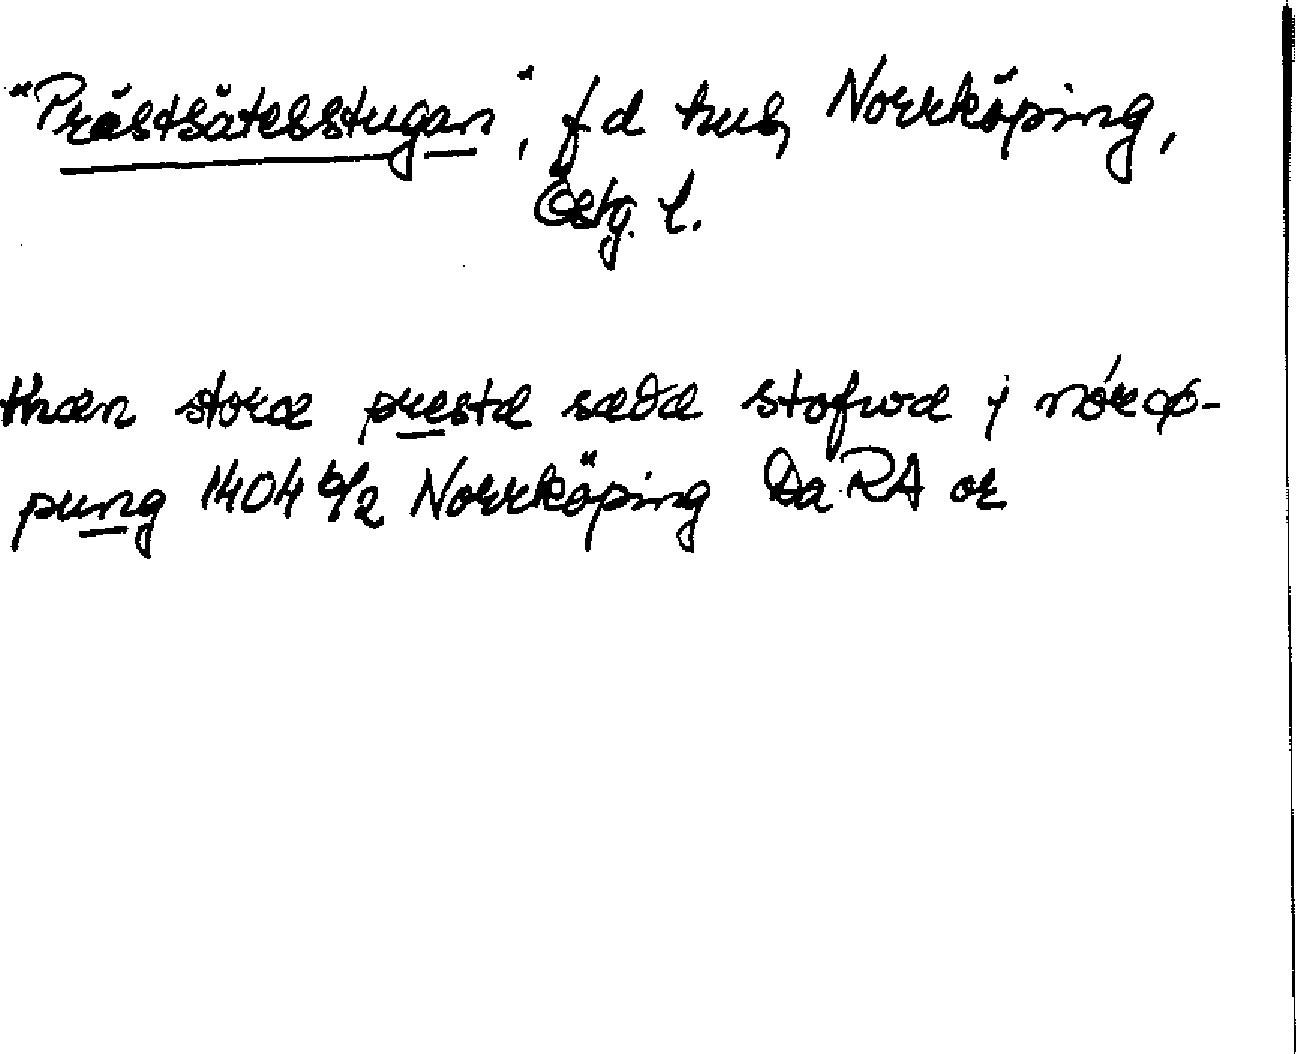 "Prästsätesstugan", f d hus, Norrköping,
Östg. l.
thæn storæ prestæ sædæ stofwæ j nórcø-
pung 1404 6/2 Norrköping Da RA or